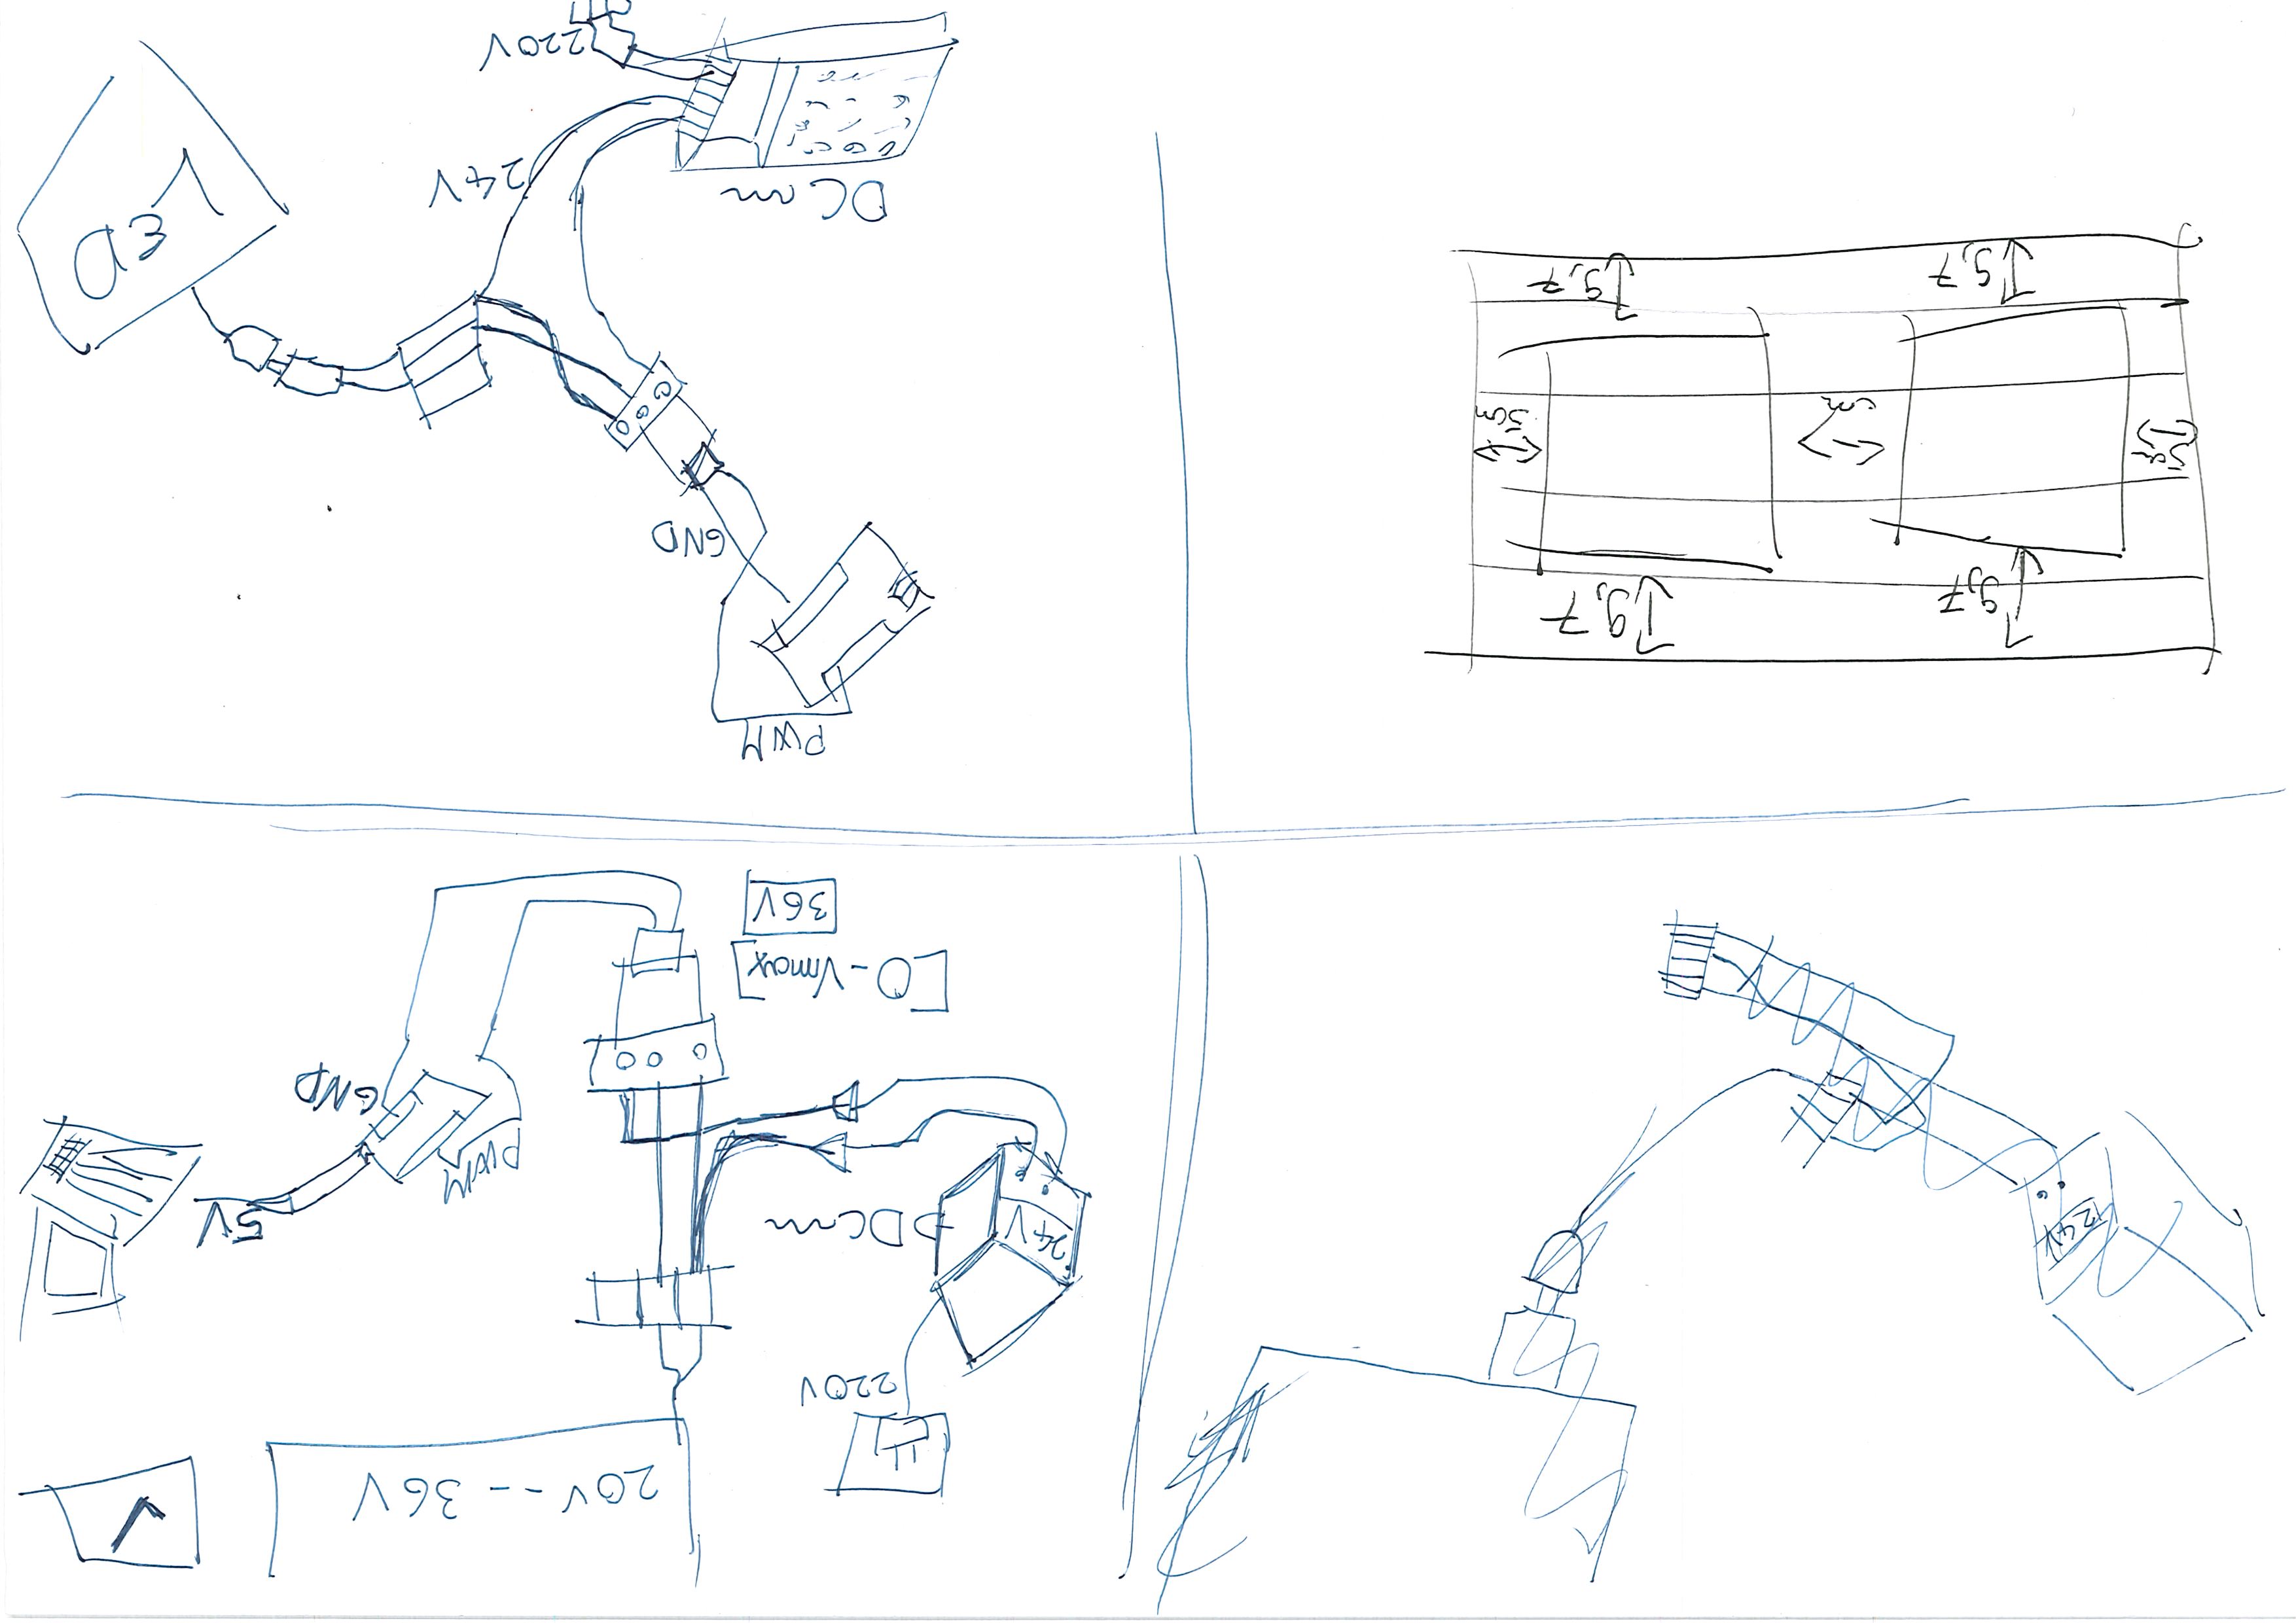 24V
20V -- 36V
220V
24V
DC
5V
PWM
GND
[0-Vmax]
36V
PWM
GND
9,7
9,7
5cm
cm
5cm
9,7
9,7
LED
DC
24V
220V